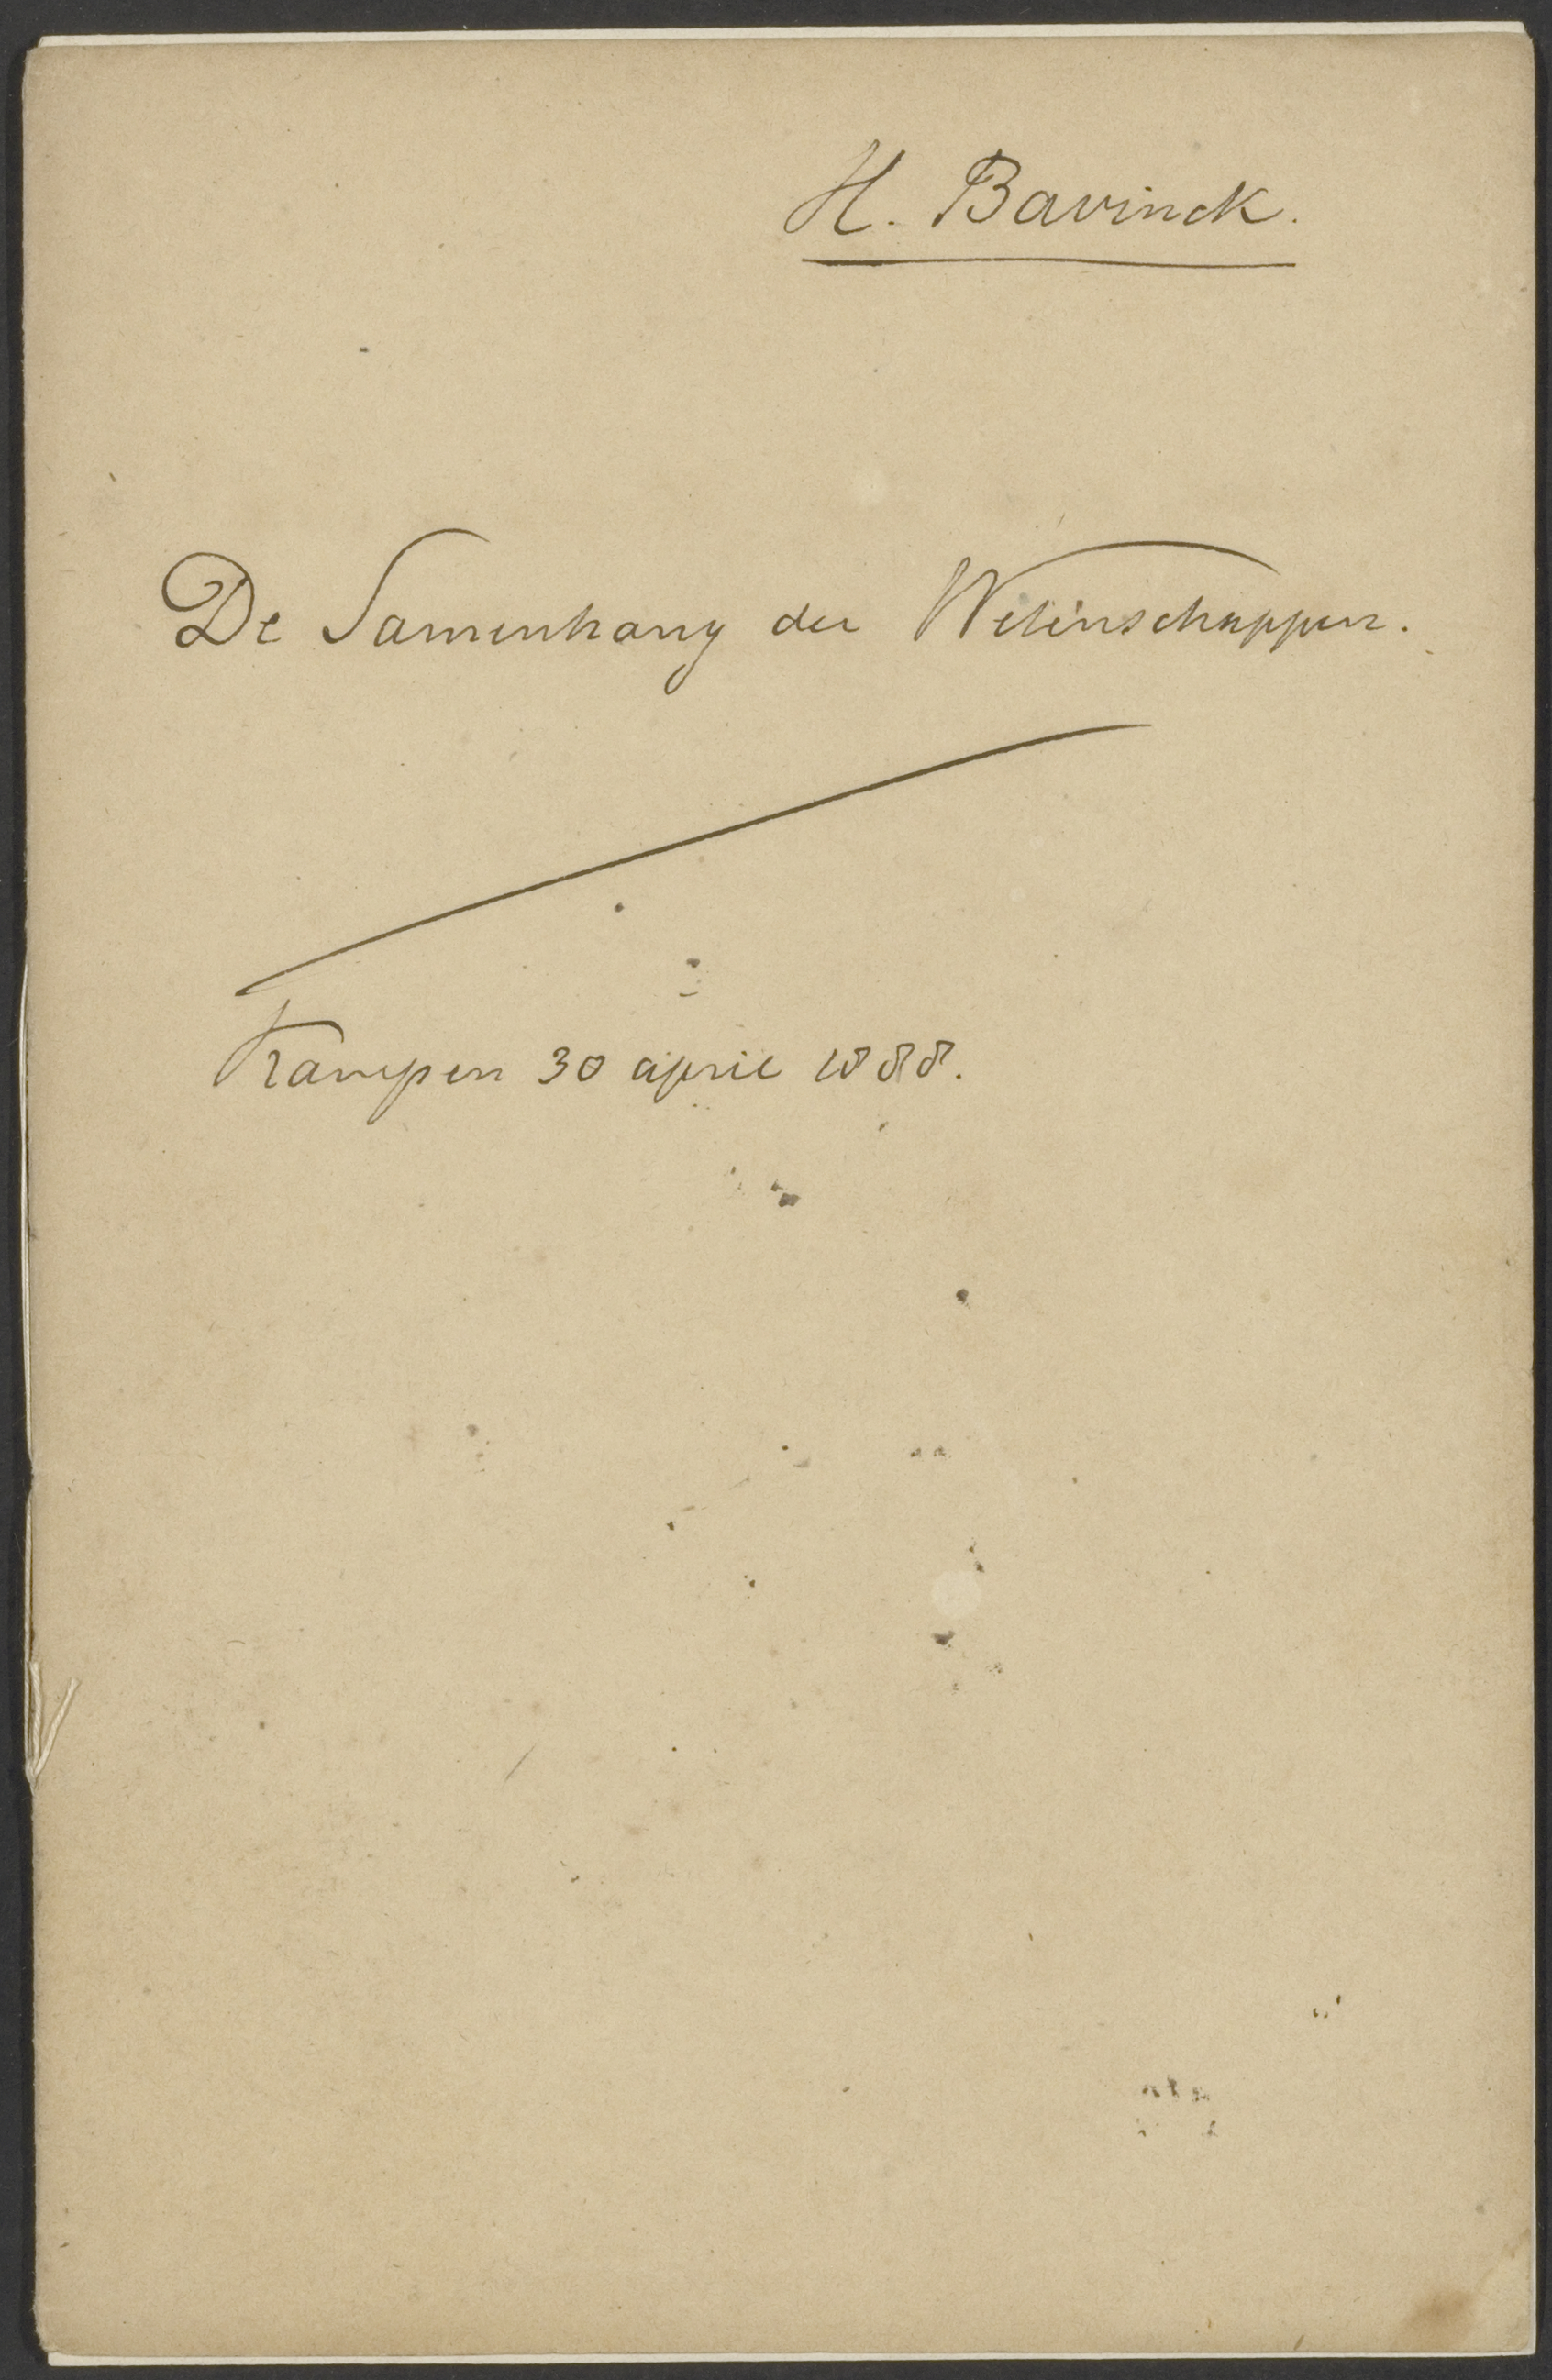 H. Bavinck.
De Samenhang der Wetenschappen.
Kampen 30 april 1888.